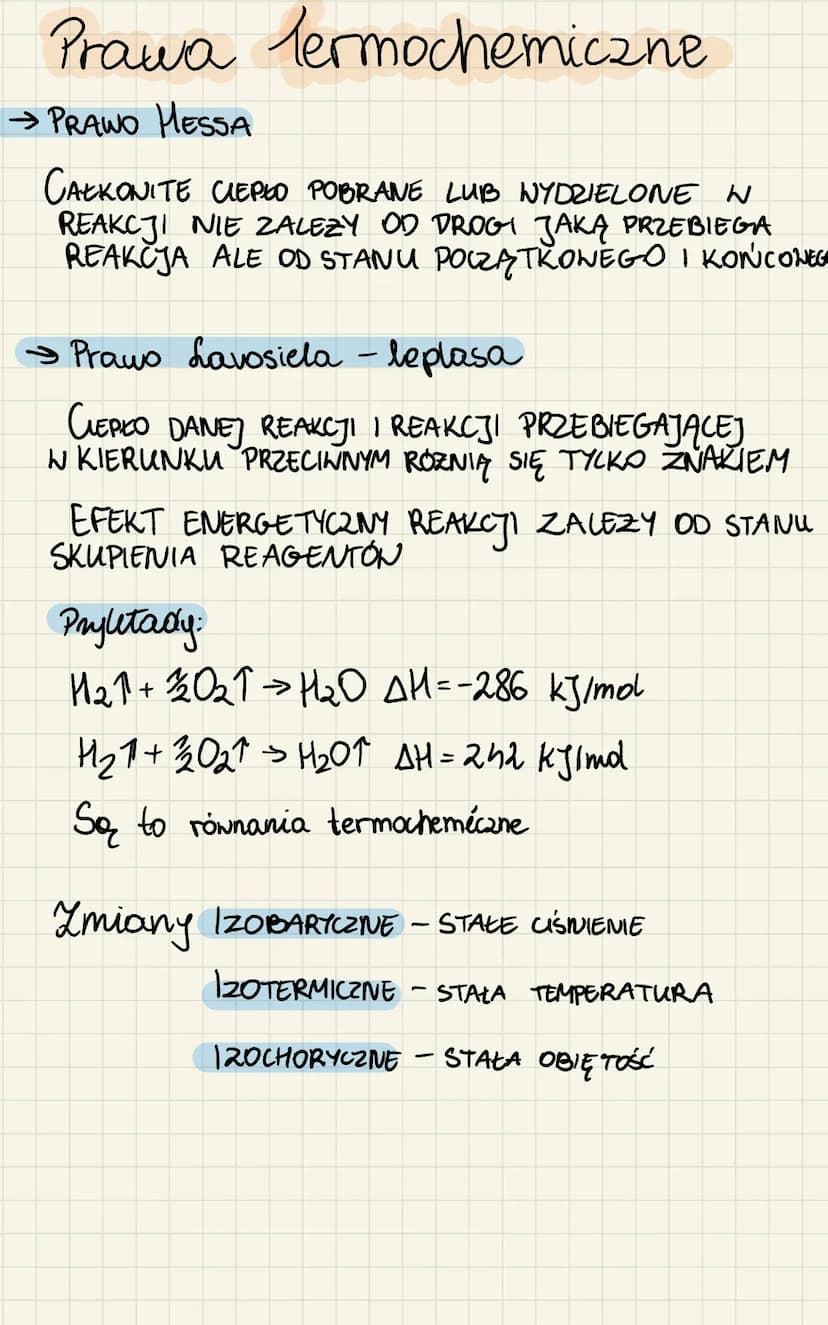 Prawa termochemiczne
→ PRAWO HESSA
CAŁKOWITE CIEPŁO POBRANE LUB WYDZIELONE W
REAKCJI NIE ZALEŻY OD DROGI JAKĄ PRZEBIEGA
REAKCJA ALE OD STANU POCZĄTKOWEGO I KOŃCOWEG
→ Prawo Lavosiela - leplasa
CIEPŁO DANEJ REAKCJI I REAKCJI PRZEBIEGAJĄCEJ
W KIERUNKU PRZECIWNYM RÓŻNIĄ SIĘ TYLKO ZNAKIEM
EFEKT ENERGETYCZNY REAKCJI ZALEŻY OD STANU
SKUPIENIA REAGENTÓW
Przykłady:
H₂↑ + ½O₂↑ → H₂O ΔH = -286 kJ/mol
H₂↑ + ½O₂↑ → H₂O↑ ΔH = 242 kJ/mol
Są to równania termochemiczne
Zmiany IZOBARYCZNE - STAŁE CIŚNIENIE
IZOTERMICZNE - STAŁA TEMPERATURA
IZOCHORYCZNE - STAŁA OBIĘTOŚĆ